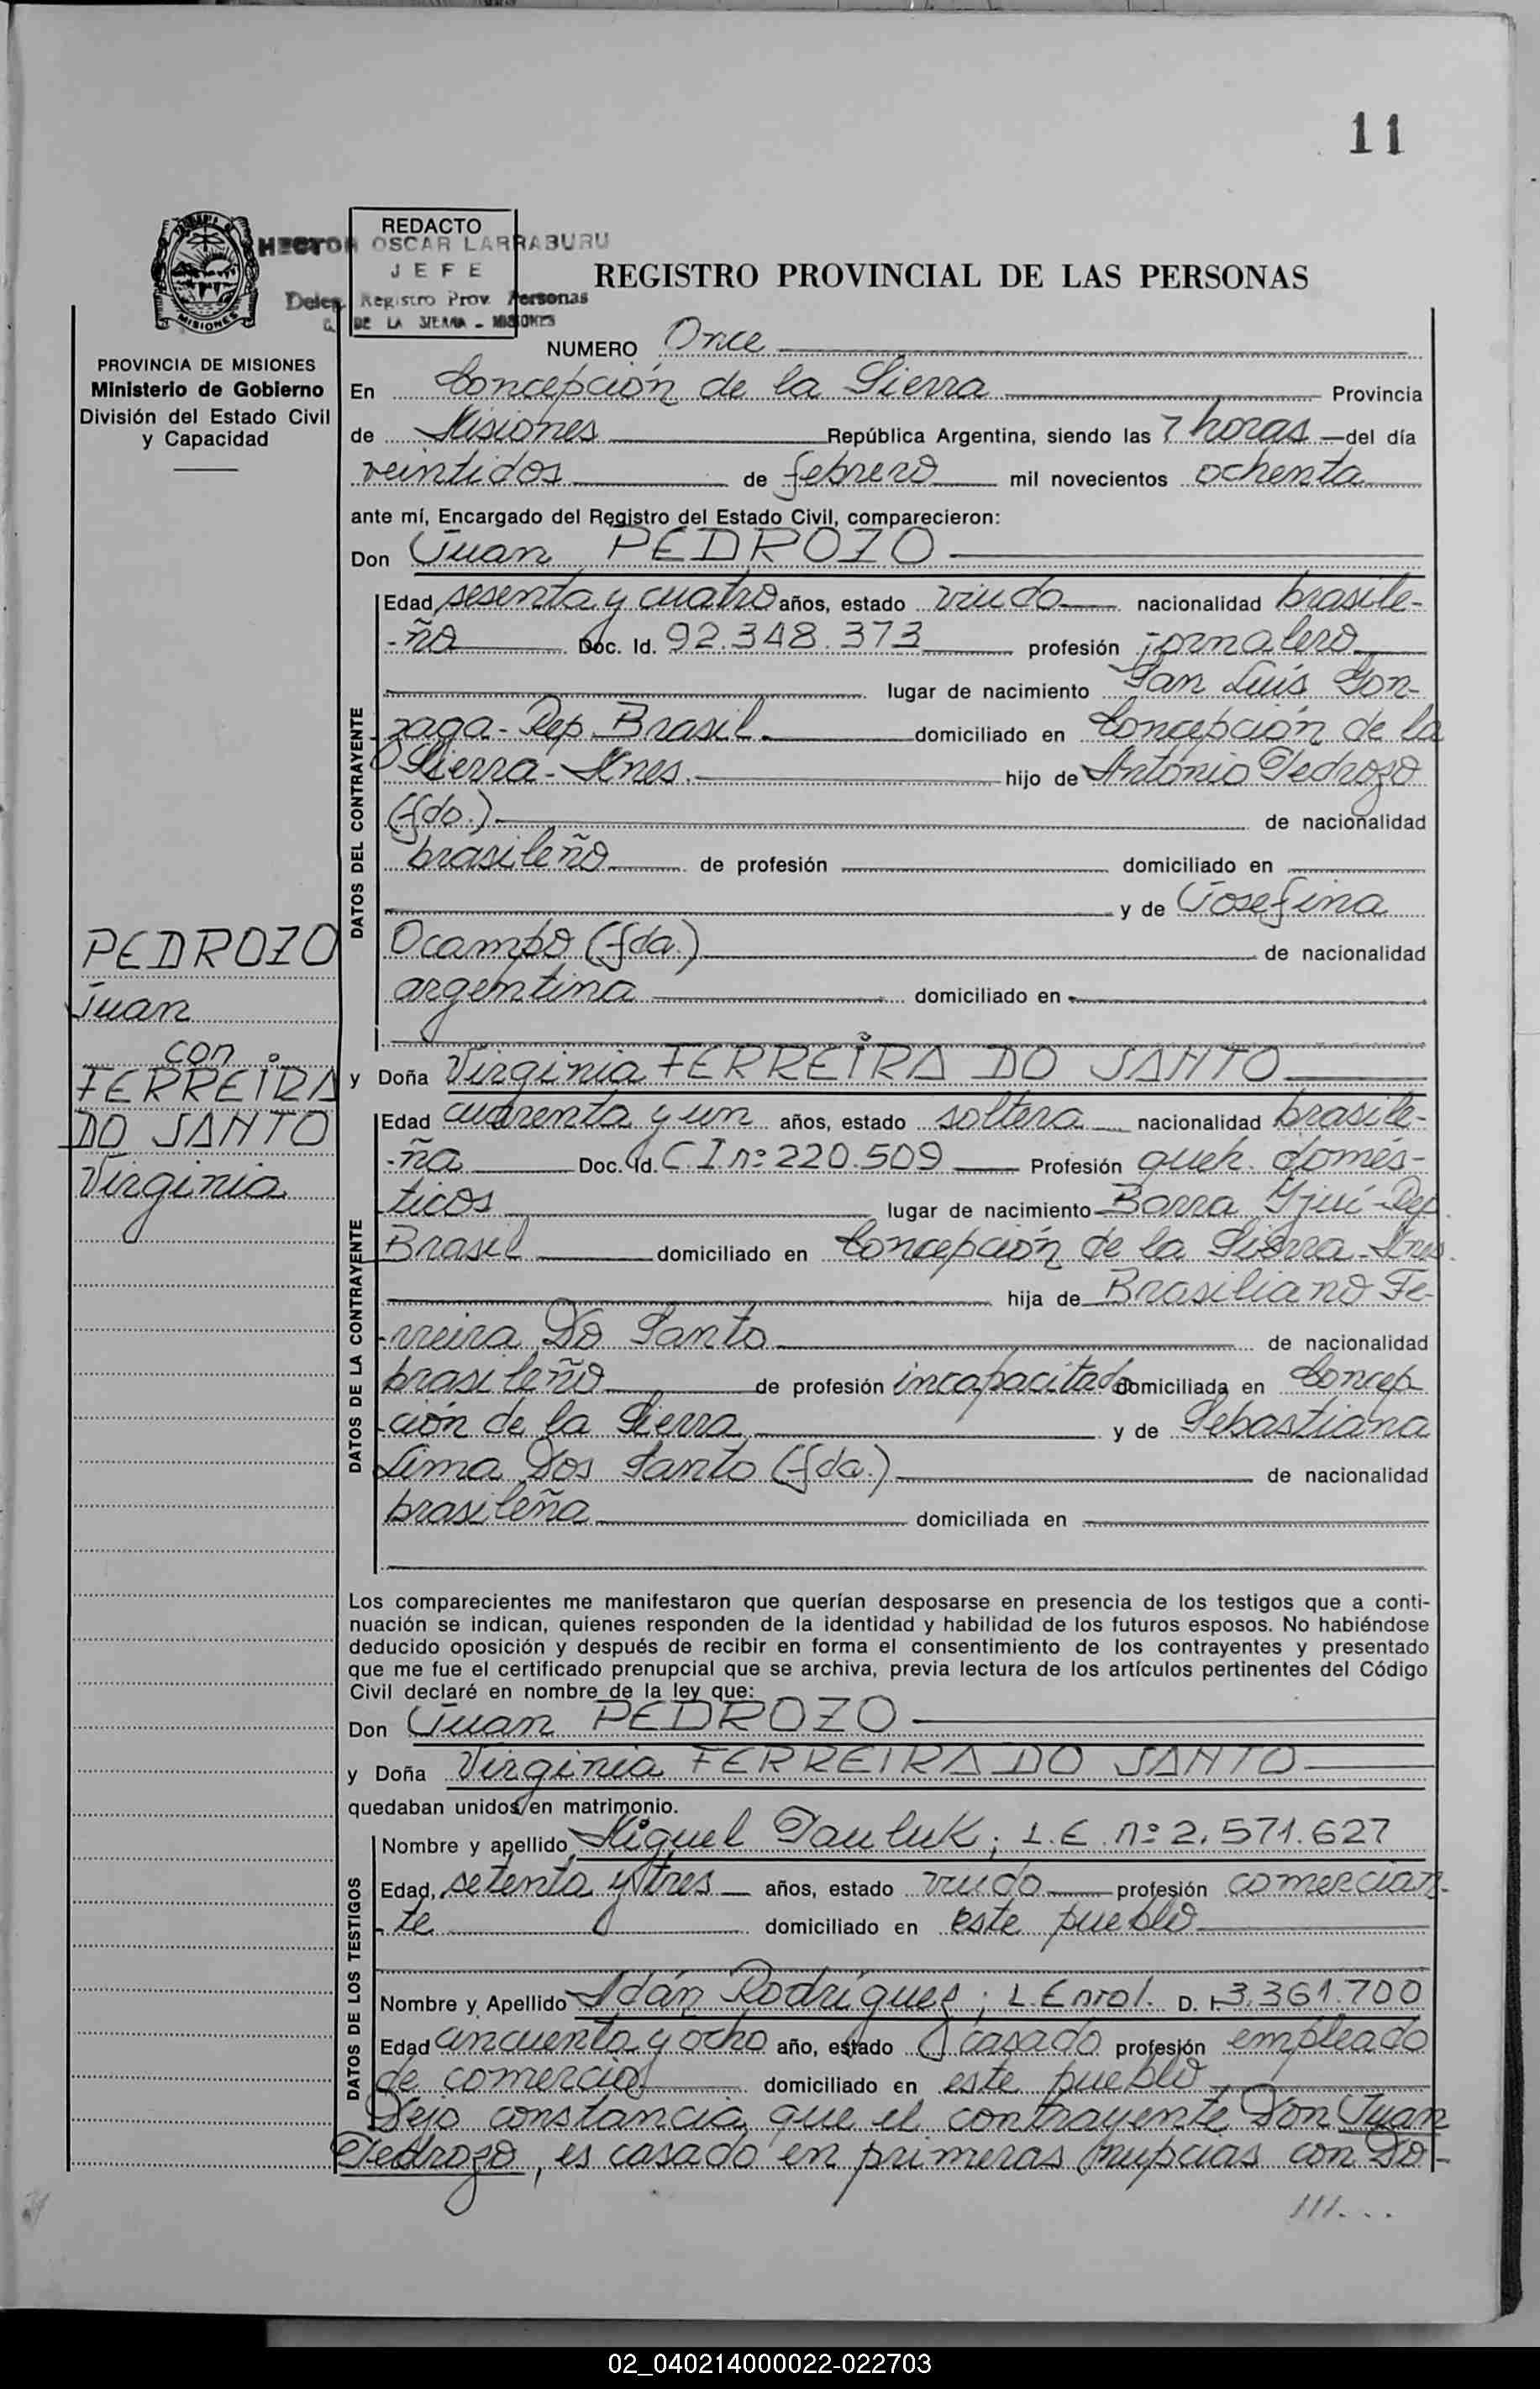 11
REDACTO
HECTOR OSCAR LARRABURU
JEFE
Deleg. Registro Prov. Personas
C. DE LA SIERRA - MISIONES
MISIONES
REGISTRO PROVINCIAL DE LAS PERSONAS
PROVINCIA DE MISIONES
Ministerio de Gobierno
División del Estado Civil
y Capacidad
PEDROZO
Juan
con
FERREIRA
DO SANTO
Virginia
NUMERO Once
En Concepción de la Sierra Provincia
de Misiones República Argentina, siendo las 7 horas del día
veintidos de febrero mil novecientos ochenta
ante mí, Encargado del Registro del Estado Civil, comparecieron:
Don Juan PEDROZO
DATOS DEL CONTRAYENTE
Edad sesenta y cuatro años, estado viudo nacionalidad brasile-
-ño Doc. Id. 92.348.373 profesión jornalero
lugar de nacimiento San Luis Gon-
zaga - Rep. Brasil. domiciliado en Concepción de la
Sierra - Mnes. hijo de Antonio Pedrozo
(fdo.) de nacionalidad
brasileño de profesión domiciliado en
y de Josefina
Ocampo (fda.) de nacionalidad
argentina domiciliado en
y Doña Virginia FERREIRA DO SANTO
DATOS DE LA CONTRAYENTE
Edad cuarenta y un años, estado soltera nacionalidad brasile-
-ña Doc. Id. C I nº 220.509 Profesión queh. domés-
ticos lugar de nacimiento Barra Yjuí - Rep.
Brasil domiciliado en Concepción de la Sierra - Mnes.
hija de Brasiliano Fe-
-rreira Do Santo de nacionalidad
brasileño de profesión incapacitado domiciliada en Concep-
ción de la Sierra y de Sebastiana
Lima Dos Santo (fda.) de nacionalidad
brasileña domiciliada en
Los comparecientes me manifestaron que querían desposarse en presencia de los testigos que a conti-
nuación se indican, quienes responden de la identidad y habilidad de los futuros esposos. No habiéndose
deducido oposición y después de recibir en forma el consentimiento de los contrayentes y presentado
que me fue el certificado prenupcial que se archiva, previa lectura de los artículos pertinentes del Código
Civil declaré en nombre de la ley que:
Don Juan PEDROZO
y Doña Virginia FERREIRA DO SANTO
quedaban unidos en matrimonio.
DATOS DE LOS TESTIGOS
Nombre y apellido Miguel Pauluk; L.E. nº 2.571.627
Edad, setenta y tres años, estado viudo profesión comercian-
-te domiciliado en este pueblo
Nombre y Apellido Adán Rodrígues; L. Enrol. D. I. 3.361.700
Edad cincuenta y ocho año, estado casado profesión empleado
de comercio domiciliado en este pueblo
Dejo constancia que el contrayente Don Juan
Pedrozo, es casado en primeras nupcias con Do-
///...
02_040214000022-022703